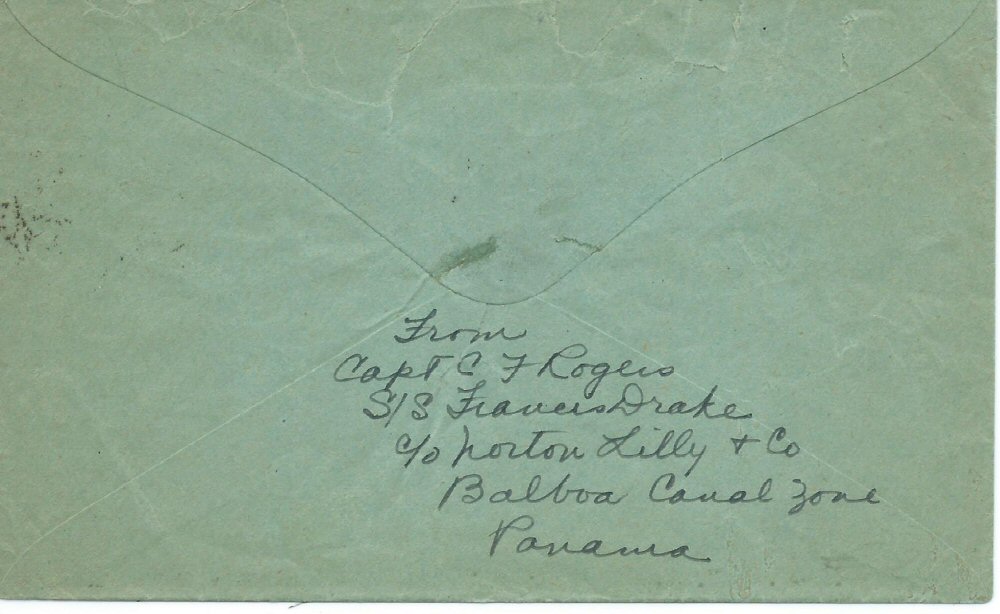 From
Capt C F Rogers
S/S Francis Drake
c/o Norton Lilly + Co
Balboa Canal Zone
Panama